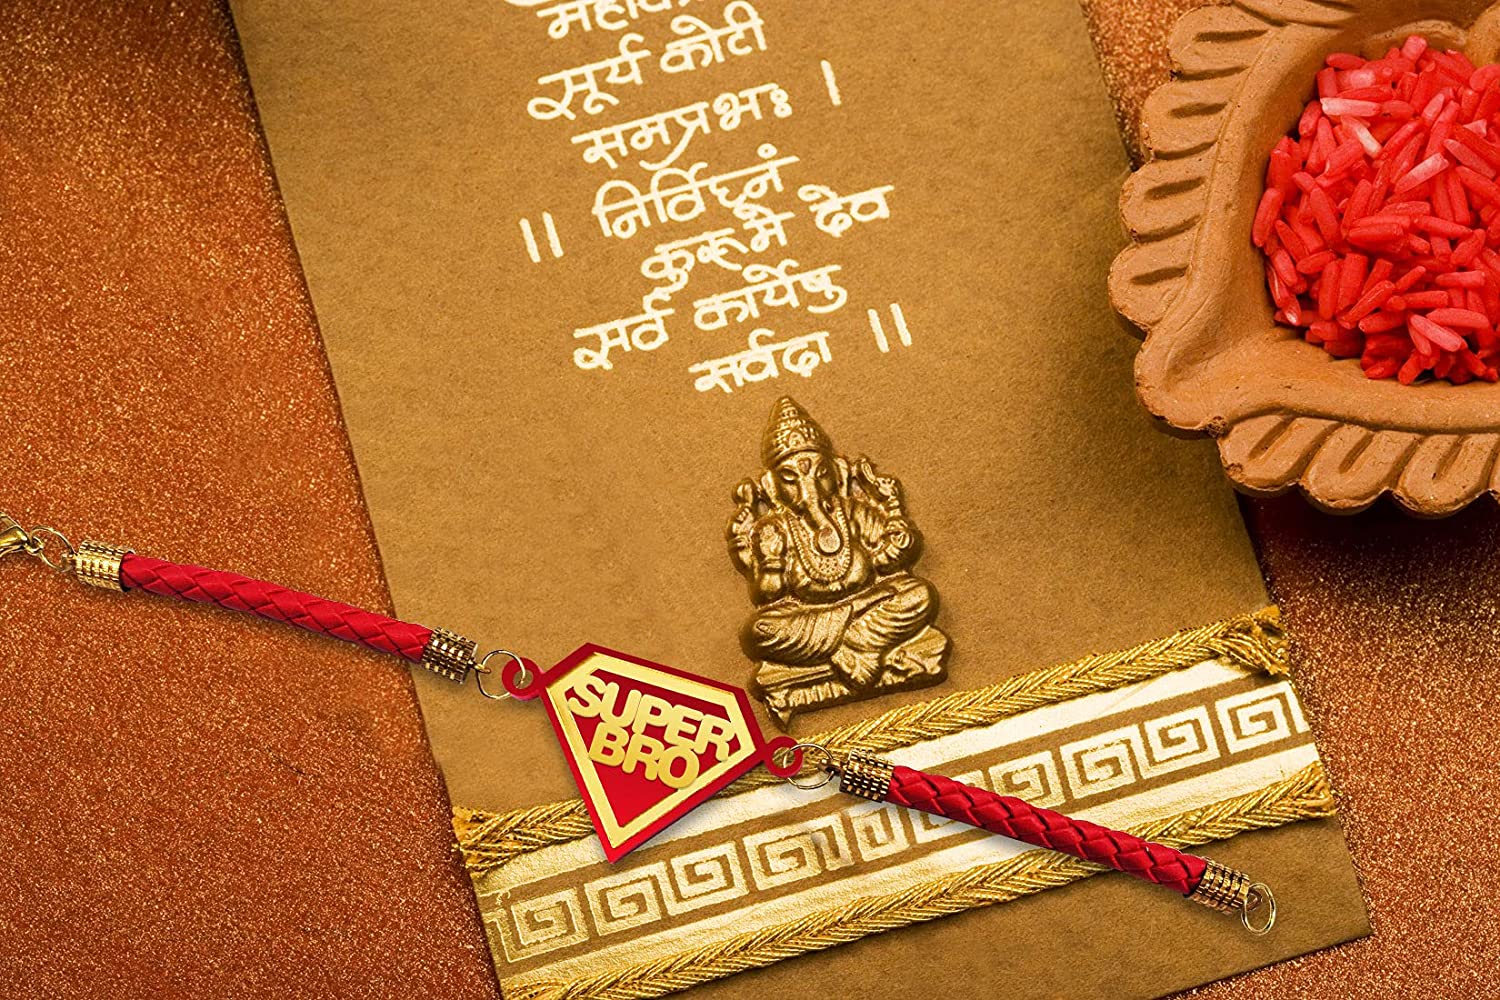 सूर्य कोटी
समप्रभः ।
॥ निर्विघ्नं
कुरूमे देव
सर्व कार्येषु
सर्वदा ॥
SUPER
BRO